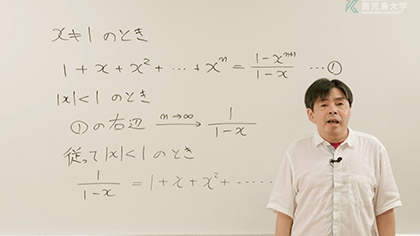 鹿児島大学
x≠1 のとき
1 + x + x² + ⋯ + xⁿ = (1-xⁿ⁺¹)/(1-x) ⋯①
|x|<1 のとき
①の右辺 —n→∞→ 1/(1-x)
従って |x|<1 のとき
1/(1-x) = 1 + x + x² + ⋯⋯